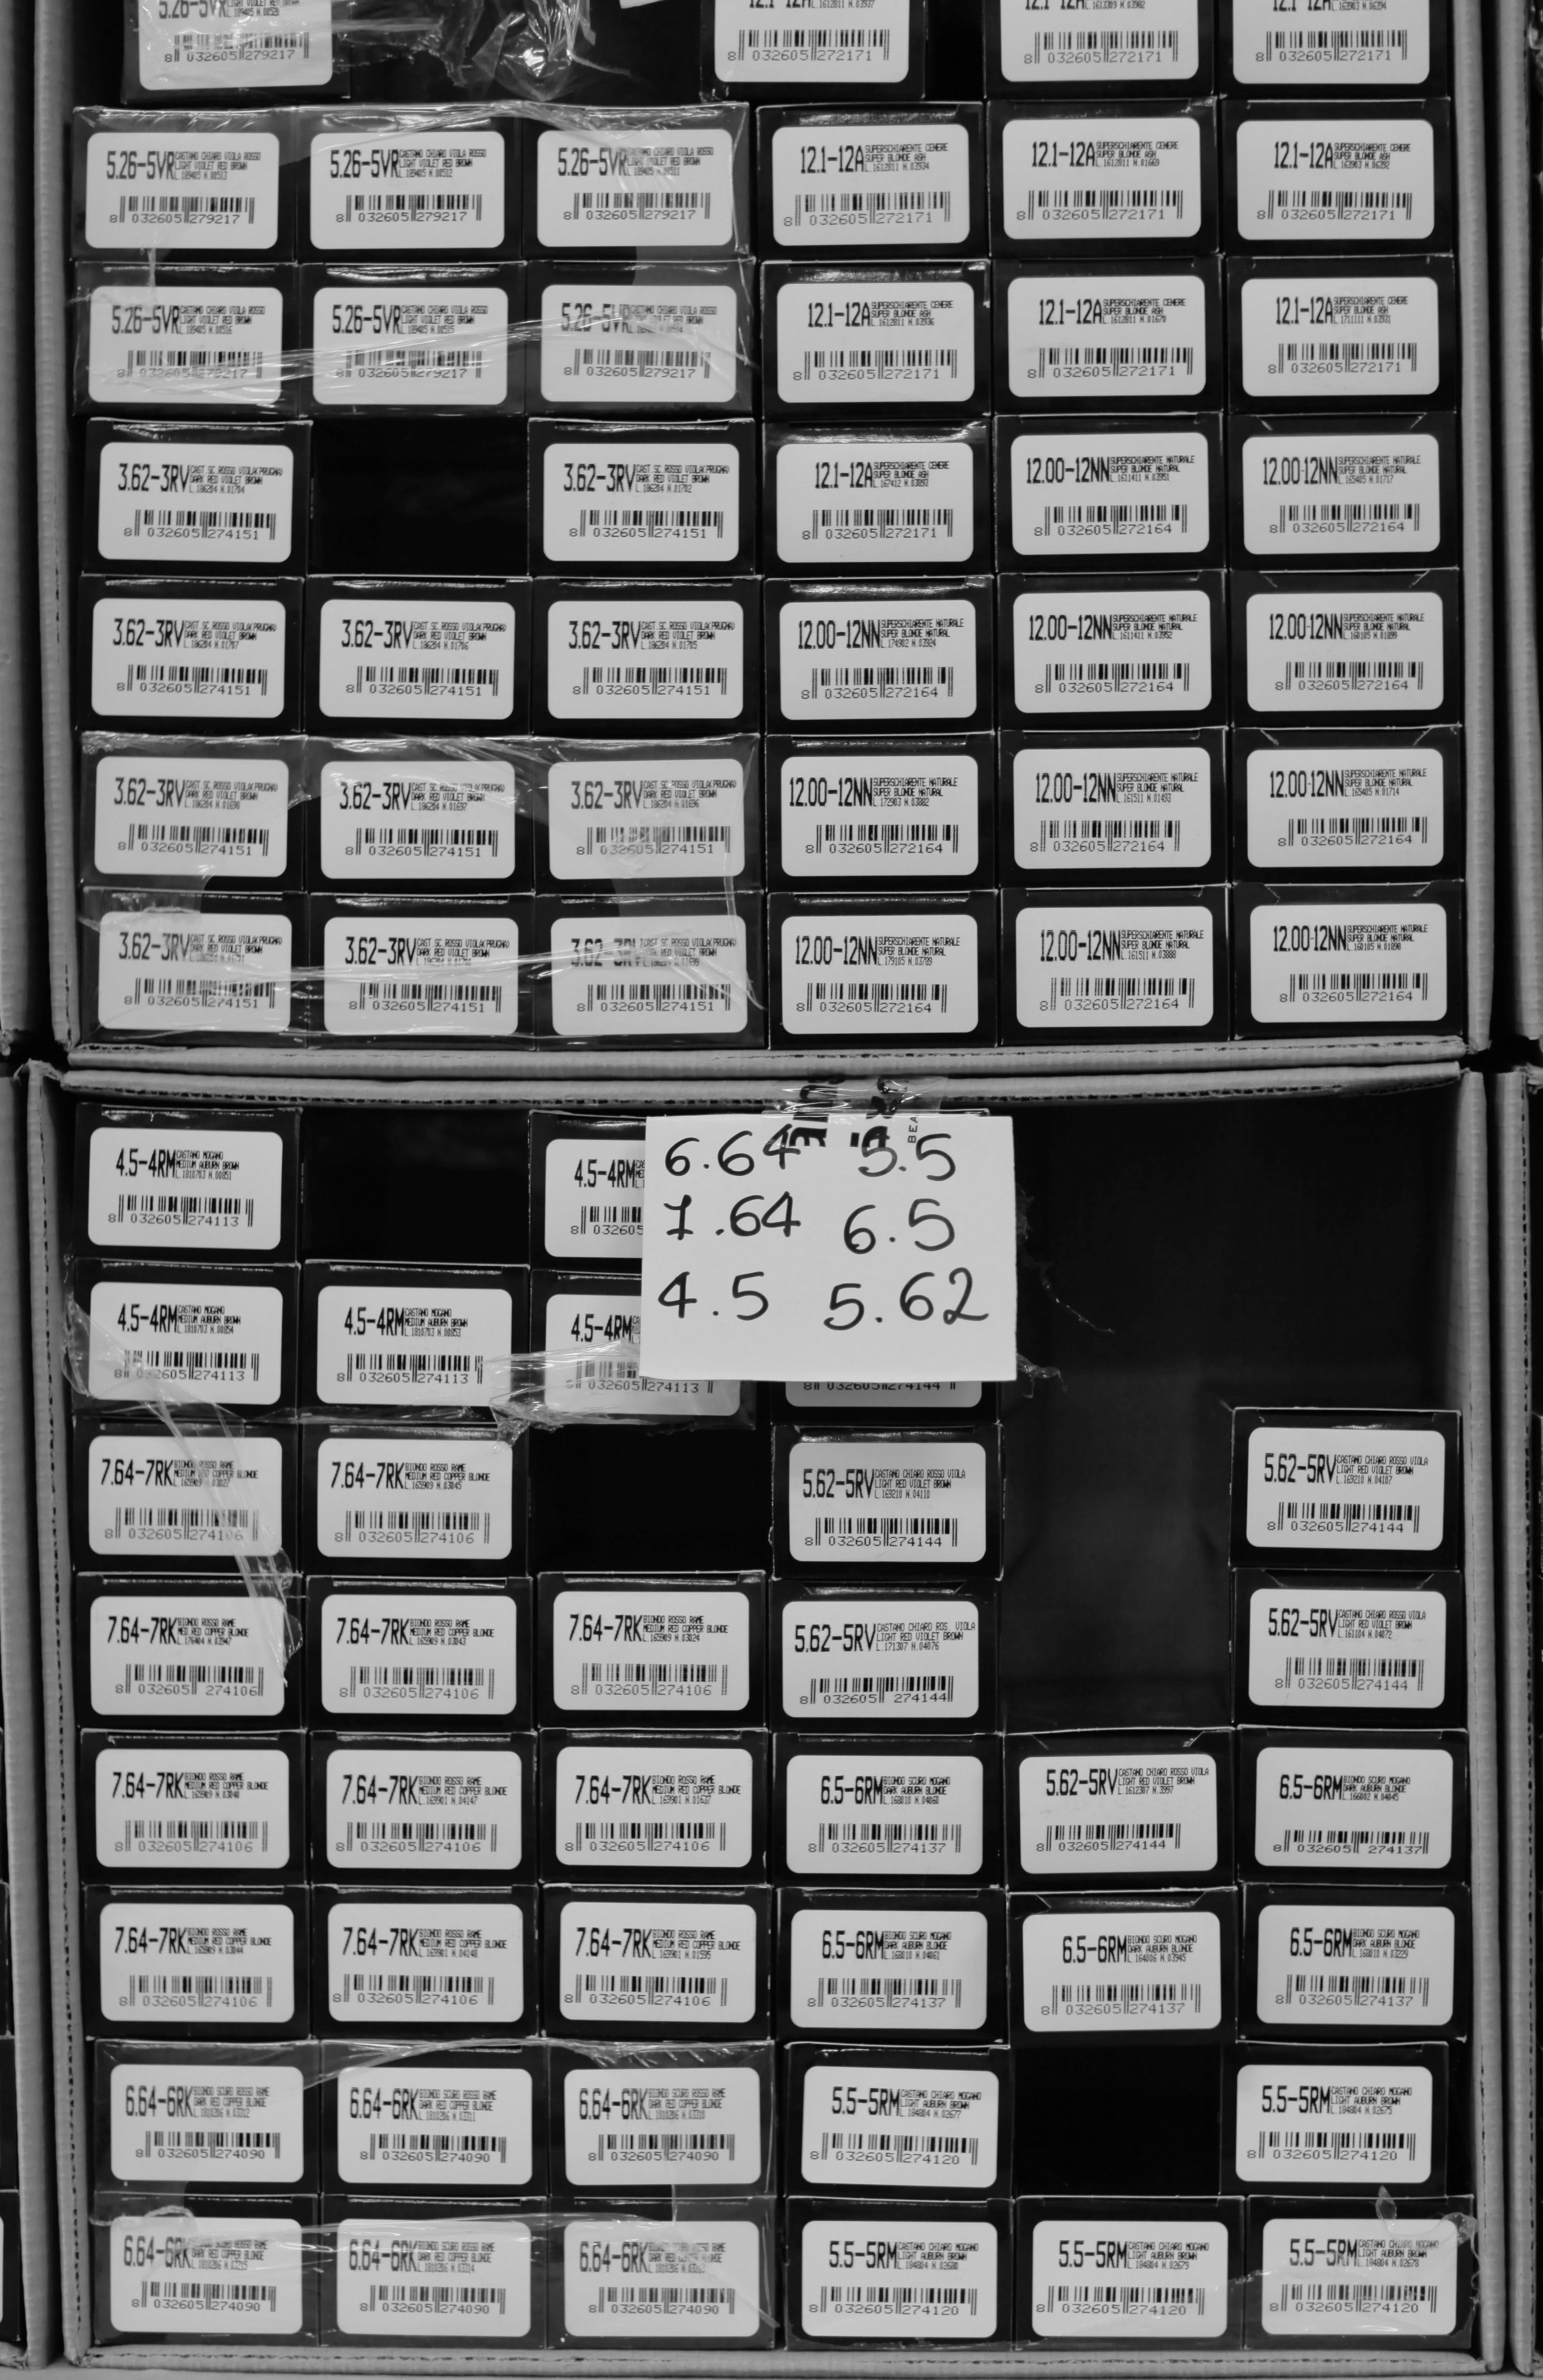 5.26-5VR
8 032605 279217
12.1-12A
8 032605 272171
12.1-12A
8 032605 272171
12.1-12A
8 032605 272171
5.26-5VR CASTANO CHIARO VIOLA ROSSO
LIGHT VIOLET RED BROWN
8 032605 279217
5.26-5VR CASTANO CHIARO VIOLA ROSSO
LIGHT VIOLET RED BROWN
8 032605 279217
5.26-5VR CASTANO CHIARO VIOLA ROSSO
LIGHT VIOLET RED BROWN
8 032605 279217
12.1-12A SUPERSCHIARENTE CENERE
SUPER BLONDE ASH
8 032605 272171
12.1-12A SUPERSCHIARENTE CENERE
SUPER BLONDE ASH
8 032605 272171
12.1-12A SUPERSCHIARENTE CENERE
SUPER BLONDE ASH
8 032605 272171
5.26-5VR CASTANO CHIARO VIOLA ROSSO
LIGHT VIOLET RED BROWN
8 032605 279217
5.26-5VR CASTANO CHIARO VIOLA ROSSO
LIGHT VIOLET RED BROWN
8 032605 279217
5.26-5VR CASTANO CHIARO VIOLA ROSSO
8 032605 279217
12.1-12A SUPERSCHIARENTE CENERE
SUPER BLONDE ASH
8 032605 272171
12.1-12A SUPERSCHIARENTE CENERE
SUPER BLONDE ASH
8 032605 272171
12.1-12A SUPERSCHIARENTE CENERE
SUPER BLONDE ASH
8 032605 272171
3.62-3RV CAST SC. ROSSO VIOLA(PRUGNA)
DARK RED VIOLET BROWN
8 032605 274151
3.62-3RV CAST SC. ROSSO VIOLA(PRUGNA)
DARK RED VIOLET BROWN
8 032605 274151
12.1-12A SUPERSCHIARENTE CENERE
SUPER BLONDE ASH
8 032605 272171
12.00-12NN SUPERSCHIARENTE NATURALE
SUPER BLONDE NATURAL
8 032605 272164
12.00-12NN SUPERSCHIARENTE NATURALE
SUPER BLONDE NATURAL
8 032605 272164
3.62-3RV CAST SC. ROSSO VIOLA(PRUGNA)
DARK RED VIOLET BROWN
8 032605 274151
3.62-3RV CAST SC. ROSSO VIOLA(PRUGNA)
DARK RED VIOLET BROWN
8 032605 274151
3.62-3RV CAST SC. ROSSO VIOLA(PRUGNA)
DARK RED VIOLET BROWN
8 032605 274151
12.00-12NN SUPERSCHIARENTE NATURALE
SUPER BLONDE NATURAL
8 032605 272164
12.00-12NN SUPERSCHIARENTE NATURALE
SUPER BLONDE NATURAL
8 032605 272164
12.00-12NN SUPERSCHIARENTE NATURALE
SUPER BLONDE NATURAL
8 032605 272164
3.62-3RV CAST SC. ROSSO VIOLA(PRUGNA)
DARK RED VIOLET BROWN
8 032605 274151
3.62-3RV CAST SC. ROSSO VIOLA(PRUGNA)
DARK RED VIOLET BROWN
8 032605 274151
3.62-3RV CAST SC. ROSSO VIOLA(PRUGNA)
DARK RED VIOLET BROWN
8 032605 274151
12.00-12NN SUPERSCHIARENTE NATURALE
SUPER BLONDE NATURAL
8 032605 272164
12.00-12NN SUPERSCHIARENTE NATURALE
SUPER BLONDE NATURAL
8 032605 272164
12.00-12NN SUPERSCHIARENTE NATURALE
SUPER BLONDE NATURAL
8 032605 272164
3.62-3RV CAST SC. ROSSO VIOLA(PRUGNA)
DARK RED VIOLET BROWN
8 032605 274151
3.62-3RV CAST SC. ROSSO VIOLA(PRUGNA)
DARK RED VIOLET BROWN
8 032605 274151
3.62-3RV CAST SC. ROSSO VIOLA(PRUGNA)
DARK RED VIOLET BROWN
8 032605 274151
12.00-12NN SUPERSCHIARENTE NATURALE
SUPER BLONDE NATURAL
8 032605 272164
12.00-12NN SUPERSCHIARENTE NATURALE
SUPER BLONDE NATURAL
8 032605 272164
12.00-12NN SUPERSCHIARENTE NATURALE
SUPER BLONDE NATURAL
8 032605 272164
4.5-4RM CASTANO MOGANO
MEDIUM AUBURN BROWN
8 032605 274113
4.5-4RM
8 032605
BEA
6.64 5.5
7.64 6.5
4.5 5.62
4.5-4RM CASTANO MOGANO
MEDIUM AUBURN BROWN
8 032605 274113
4.5-4RM CASTANO MOGANO
MEDIUM AUBURN BROWN
8 032605 274113
4.5-4RM
032605 274113
8 032605 274144
7.64-7RK BIONDO ROSSO RAME
COPPER BLONDE
8 032605 274106
7.64-7RK BIONDO ROSSO RAME
MEDIUM RED COPPER BLONDE
8 032605 274106
5.62-5RV CASTANO CHIARO ROSSO VIOLA
LIGHT RED VIOLET BROWN
8 032605 274144
5.62-5RV CASTANO CHIARO ROSSO VIOLA
LIGHT RED VIOLET BROWN
8 032605 274144
7.64-7RK BIONDO ROSSO RAME
MED RED COPPER BLONDE
8 032605 274106
7.64-7RK BIONDO ROSSO RAME
MEDIUM RED COPPER BLONDE
8 032605 274106
7.64-7RK BIONDO ROSSO RAME
MEDIUM RED COPPER BLONDE
8 032605 274106
5.62-5RV CASTANO CHIARO ROS. VIOLA
LIGHT RED VIOLET BROWN
L.171307 N.04076
8 032605 274144
5.62-5RV CASTANO CHIARO ROSSO VIOLA
LIGHT RED VIOLET BROWN
8 032605 274144
7.64-7RK BIONDO ROSSO RAME
MEDIUM RED COPPER BLONDE
8 032605 274106
7.64-7RK BIONDO ROSSO RAME
MEDIUM RED COPPER BLONDE
8 032605 274106
7.64-7RK BIONDO ROSSO RAME
MEDIUM RED COPPER BLONDE
8 032605 274106
6.5-6RM BIONDO SCURO MOGANO
DARK AUBURN BLONDE
8 032605 274137
5.62-5RV CASTANO CHIARO ROSSO VIOLA
LIGHT RED VIOLET BROWN
8 032605 274144
6.5-6RM BIONDO SCURO MOGANO
DARK AUBURN BLONDE
8 032605 274137
7.64-7RK BIONDO ROSSO RAME
MEDIUM RED COPPER BLONDE
8 032605 274106
7.64-7RK BIONDO ROSSO RAME
MEDIUM RED COPPER BLONDE
8 032605 274106
7.64-7RK BIONDO ROSSO RAME
MEDIUM RED COPPER BLONDE
8 032605 274106
6.5-6RM BIONDO SCURO MOGANO
DARK AUBURN BLONDE
8 032605 274137
6.5-6RM BIONDO SCURO MOGANO
DARK AUBURN BLONDE
8 032605 274137
6.5-6RM BIONDO SCURO MOGANO
DARK AUBURN BLONDE
8 032605 274137
6.64-6RK BIONDO SCURO ROSSO RAME
DARK RED COPPER BLONDE
8 032605 274090
6.64-6RK BIONDO SCURO ROSSO RAME
DARK RED COPPER BLONDE
8 032605 274090
6.64-6RK BIONDO SCURO ROSSO RAME
DARK RED COPPER BLONDE
8 032605 274090
5.5-5RM CASTANO CHIARO MOGANO
LIGHT AUBURN BROWN
8 032605 274120
5.5-5RM CASTANO CHIARO MOGANO
LIGHT AUBURN BROWN
8 032605 274120
6.64-6RK SCURO ROSSO RAME
DARK RED COPPER BLONDE
8 032605 274090
6.64-6RK BIONDO SCURO ROSSO RAME
DARK RED COPPER BLONDE
8 032605 274090
6.64-6RK
8 032605 274090
5.5-5RM CASTANO CHIARO MOGANO
LIGHT AUBURN BROWN
8 032605 274120
5.5-5RM CASTANO CHIARO MOGANO
LIGHT AUBURN BROWN
8 032605 274120
5.5-5RM CASTANO CHIARO MOGANO
LIGHT AUBURN BROWN
8 032605 274120